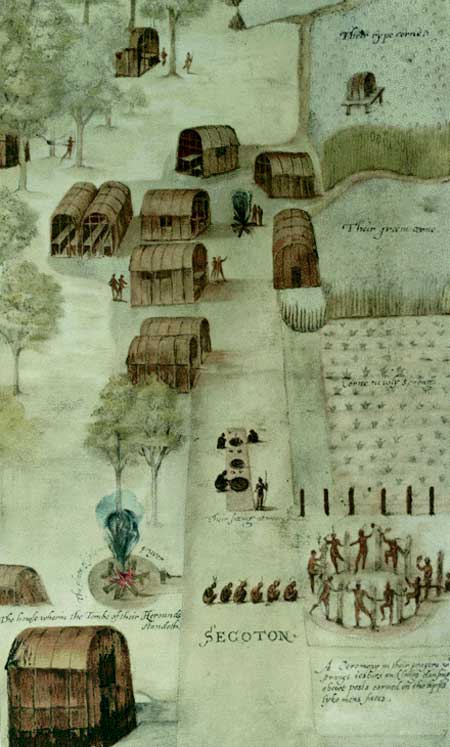 Their rype corne.
Their greene corne.
Corne newly sprong.
Their sitting at meate
The house wherin the Tombe of their Herounds
standeth.
SECOTON.
A Ceremony in their prayers w
strange iesturs and songs dansing
abowt posts carued on the topps
lyke mens faces.